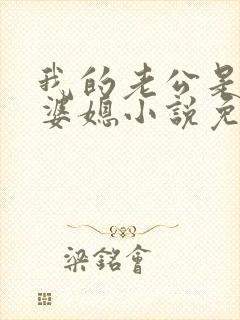 我的老公是
婆媳小說免
梁銘會